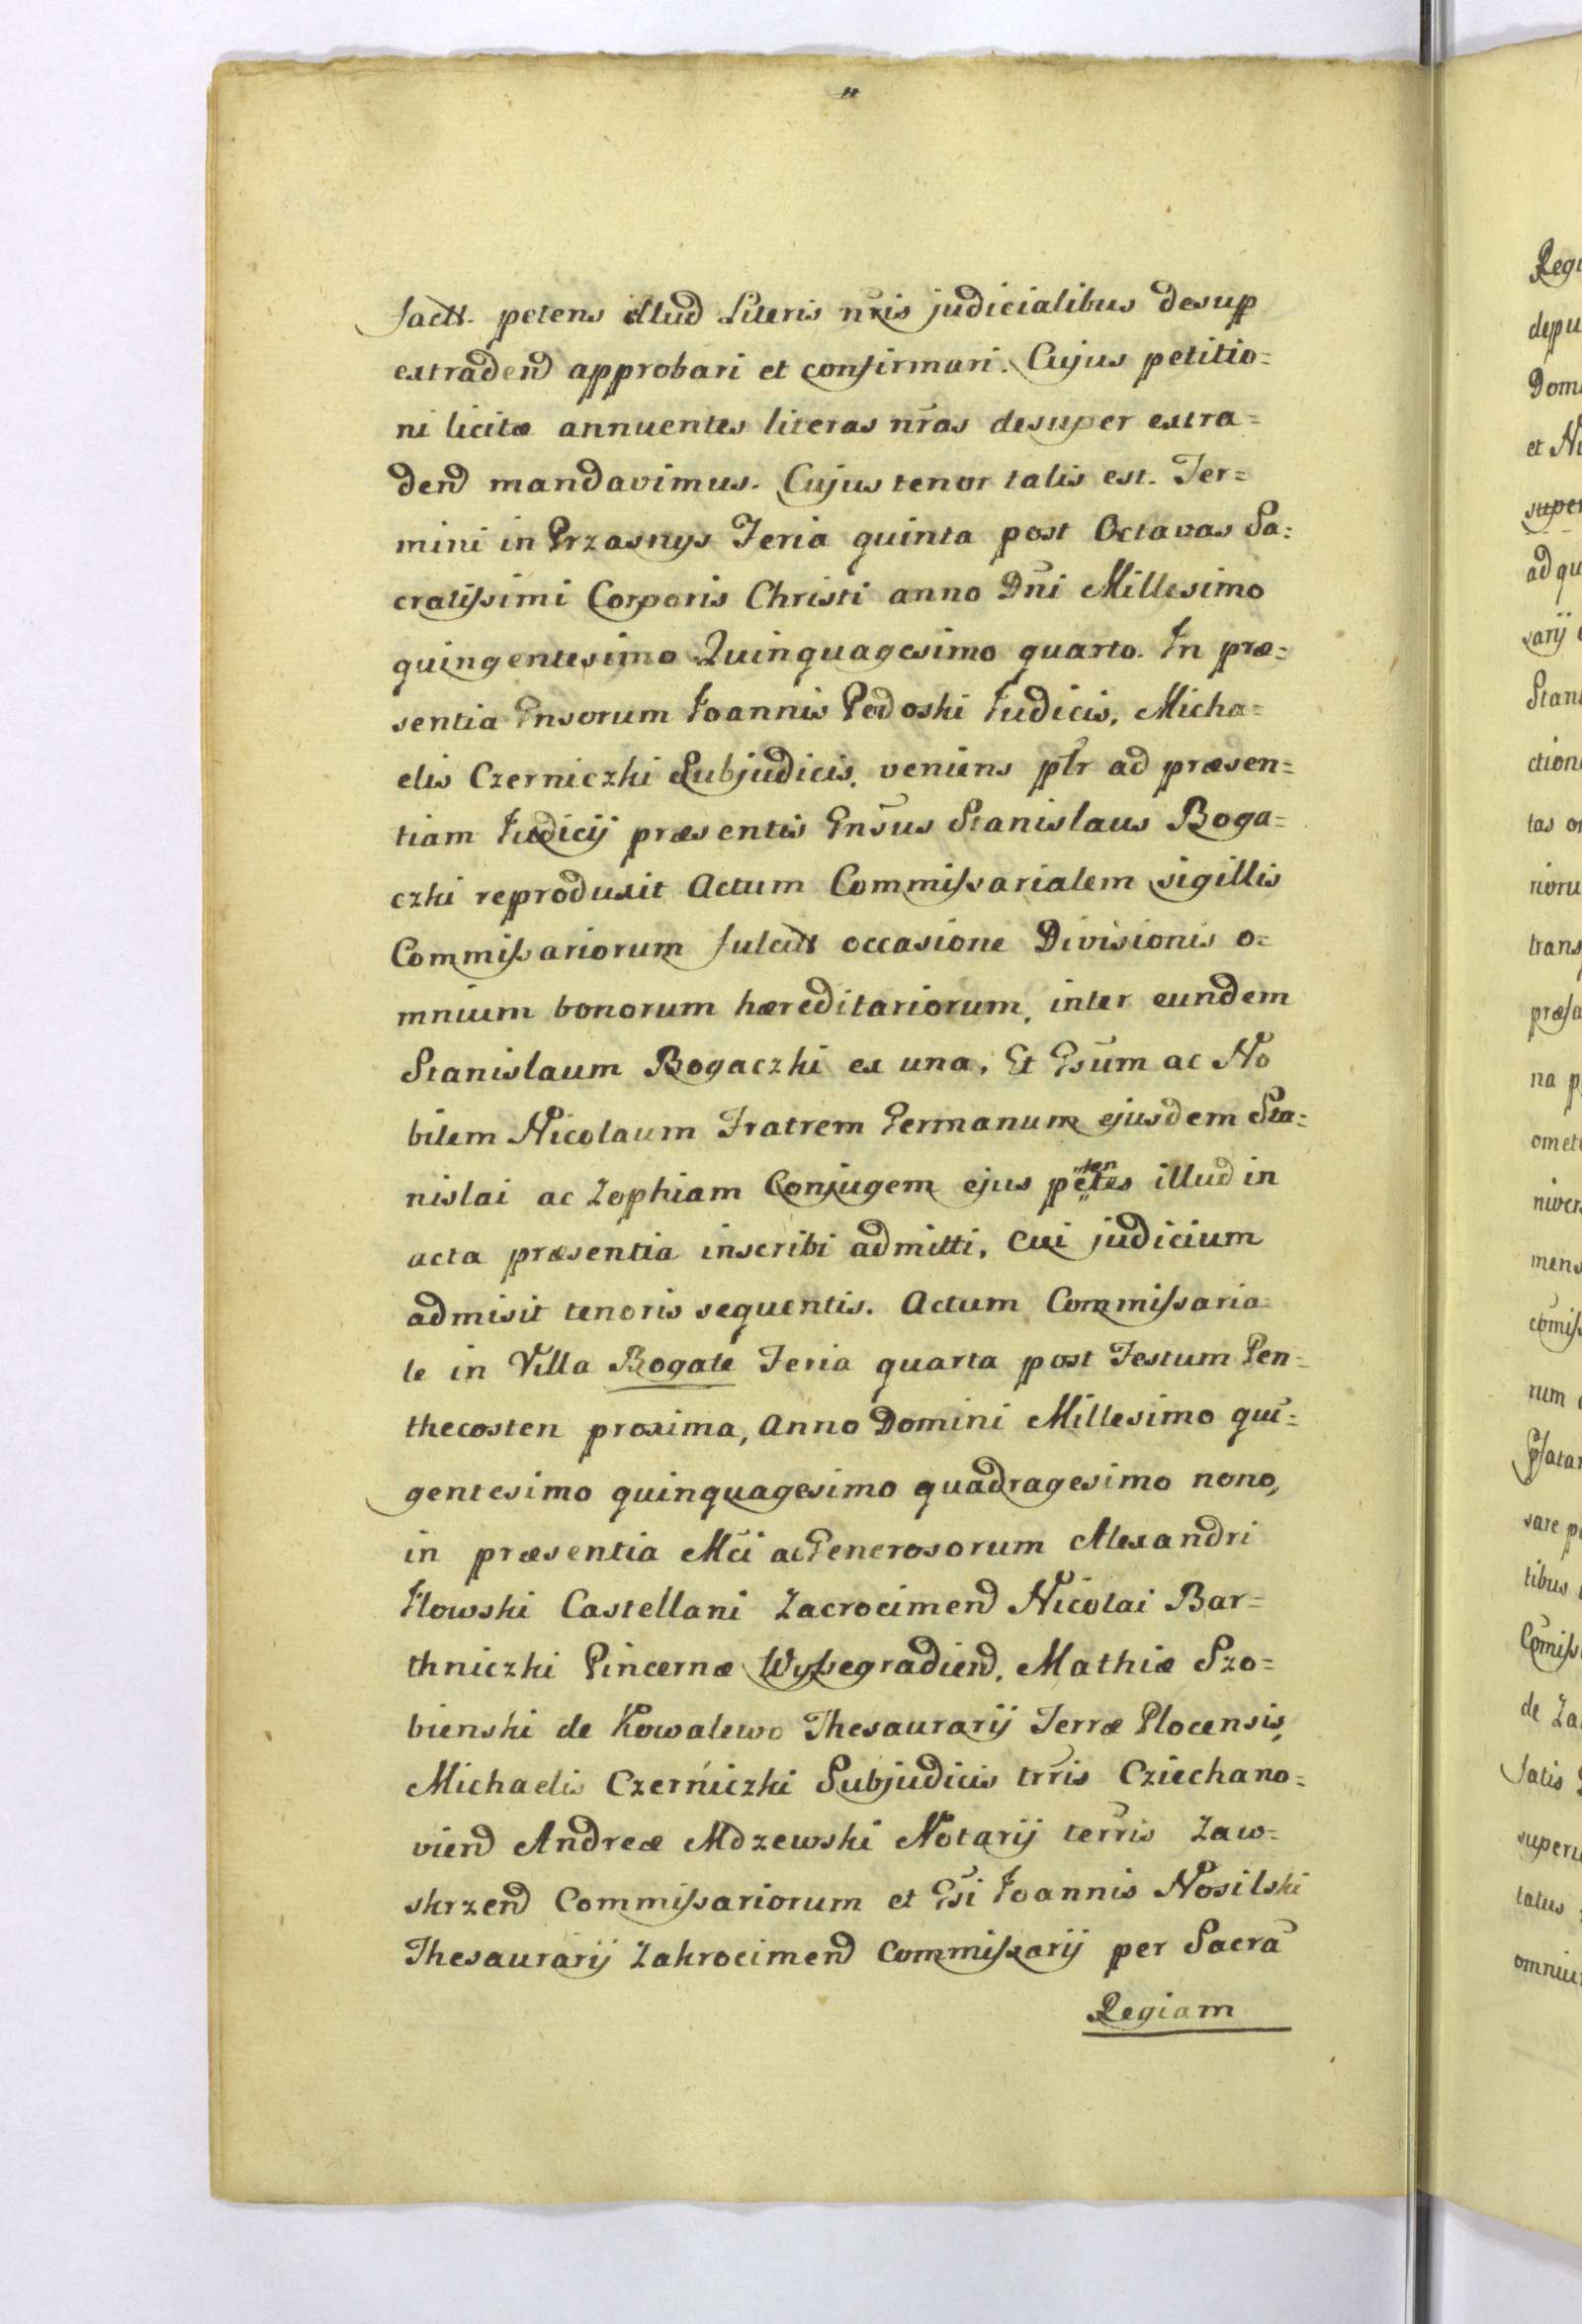 "
fact. petens illud Literis nr̃is judicialibus desup
extradend approbari et confirmari. Cujus petitio=
ni licitæ annuentes literas nr̃as desuper extra=
dend mandavimus. Cujus tenor talis est. Ter=
mini in Przasnys Feria quinta post Octavas Sa=
cratissimi Corporis Christi anno Dni Millesimo
quingentesimo Quinquagesimo quarto. In præ=
sentia Gnsorum Joannis Podoski Judicis, Micha=
elis Czerniczki Subjudicis, veniens ptr ad præsen=
tiam Judicij præsentis Gnsus Stanislaus Boga=
czki reproduxit Actum Commissarialem sigillis
Commissariorum fulcit occasione Divisionis o=
mnium bonorum hæreditariorum, inter eundem
Stanislaum Bogaczki ex una, Et Gsum ac No
bilem Nicolaum Fratrem Germanum ejusdem Sta=
nislai ac Zophiam Conjugem ejus petes illud in
ten
acta præsentia inscribi admitti, Cui judicium
admisit tenoris sequentis. Actum Commissaria=
le in Villa Bogate Feria quarta post Festum Pen=
thecosten proxima, Anno Domini Millesimo qui=
gentesimo quinquagesimo quadragesimo nono,
in præsentia Mci ac Generosorum Alexandri
Ilowski Castellani Zacrocimend Nicolai Bar=
thniczki Pincernæ Wyssegradiend, Mathiæ Szo=
bienski de Kowalewo Thesaurarij Terræ Plocensis,
Michaelis Czerniczki Subjudicis trris Cziechano=
viend Andreæ Mdzewski Notarij terris Zaw=
skrzend Commissariorum et Gsi Joannis Nosilski
Thesaurarij Zakrocimend Commissarij per Sacra
Regiam